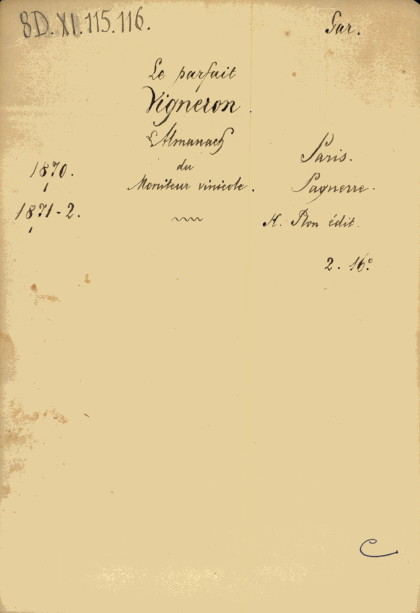 8D. XI. 115. 116.
Gar.
Le parfait
Vigneron.
Almanach
du
Moniteur vinicole.
1870.
1871-2.
Paris.
Pagnerre.
H. Plon édit.
2. 16°
C